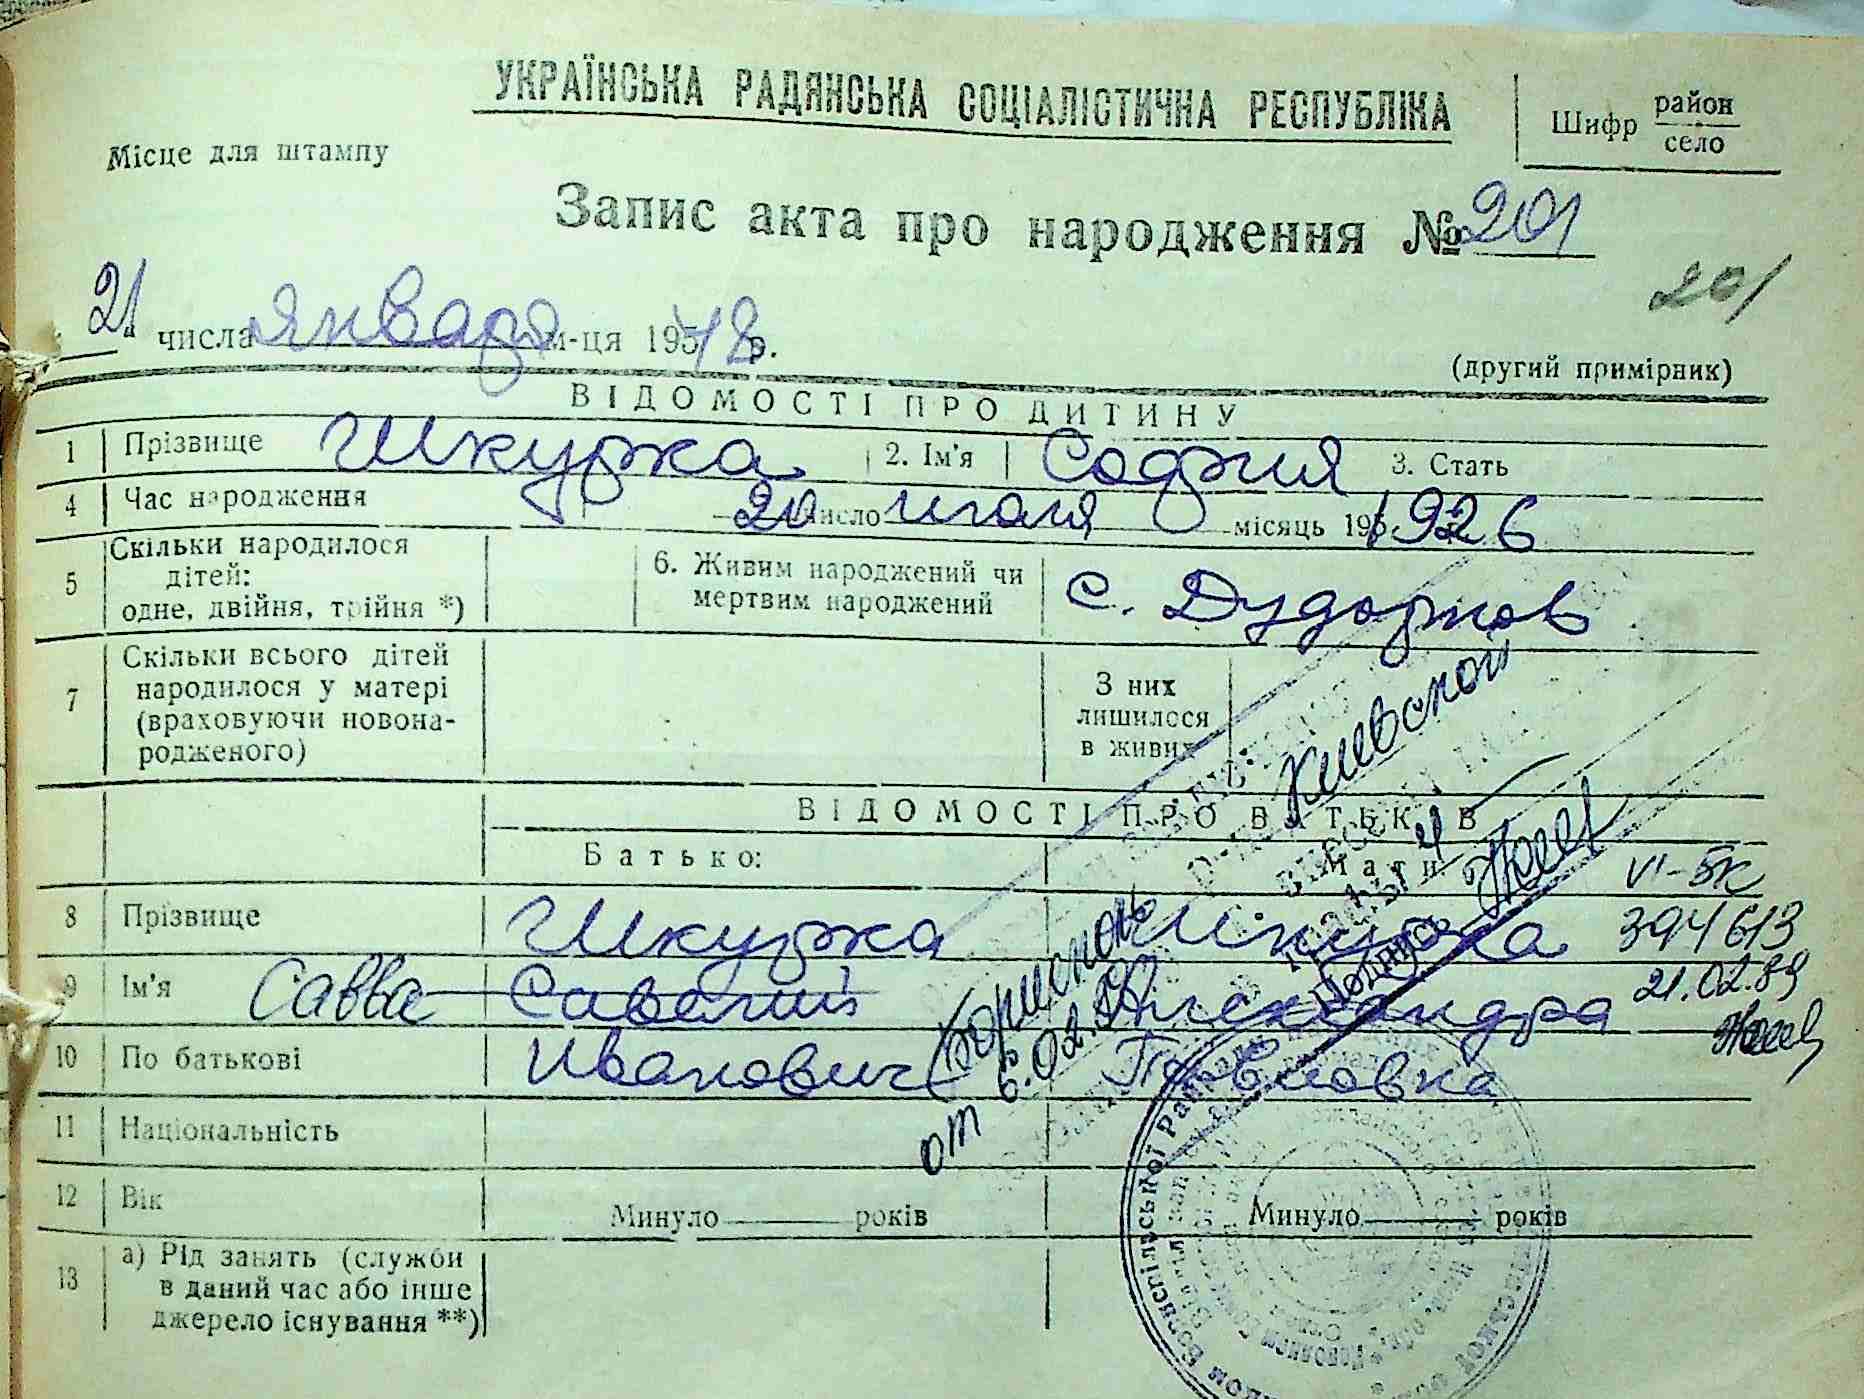 УКРАЇНСЬКА РАДЯНСЬКА СОЦІАЛІСТИЧНА РЕСПУБЛІКА
Шифр район
село
Місце для штампу
Запис акта про народження № 201
201
21 числа января м-ця 195 48 р.
(другий примірник)
ВІДОМОСТІ ПРО ДИТИНУ
1 Прізвище Шкурка 2. Ім'я София 3. Стать
4 Час народження 20 число июля місяць 195 1926
5 Скільки народилося дітей: одне, двійня, трійня *)
6. Живим народжений чи мертвим народжений с. Дударков
7 Скільки всього дітей народилося у матері (враховуючи новонародженого)
З них лишилося в живих
Киевской
ВІДОМОСТІ ПРО БАТЬКІВ
Батько: Мати
VI-БК
8 Прізвище Шкурка Шкурка 394613
9 Ім'я Савва Савелий Александра 21.02.89
10 По батькові Иванович Павловка
от 6.02.89
Подпись
11 Національність
12 Вік Минуло років Минуло років
13 а) Рід занять (служби в даний час або інше джерело існування **)